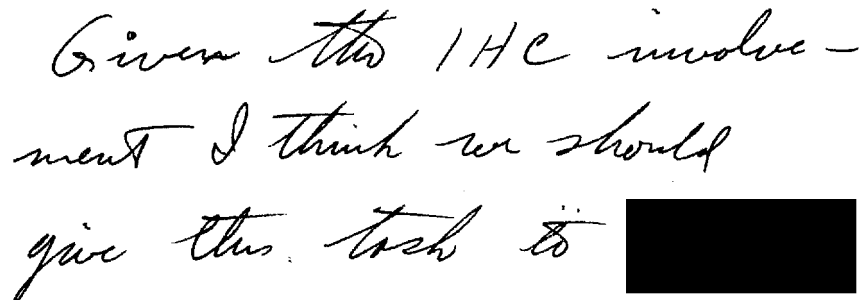 Given the IHC involve-
ment I think we should
give this task to